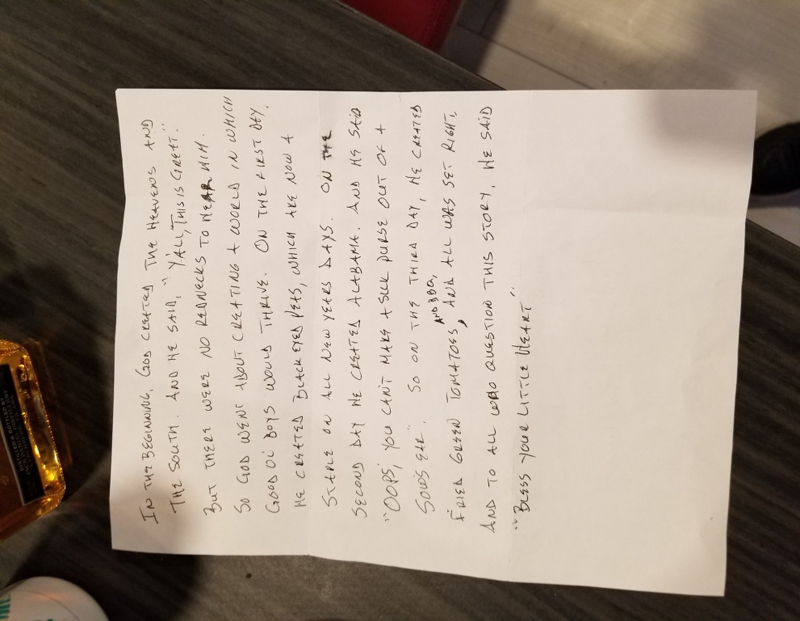 DISTILLED & BOTTLED BY
JACK DANIEL DISTILLERY
IN THE BEGINNING, GOD CREATED THE HEAVENS AND
THE SOUTH. AND HE SAID, "Y'ALL, THIS IS GREAT."
BUT THERE WERE NO REDNECKS TO HEAR HIM.
SO GOD WENT ABOUT CREATING A WORLD IN WHICH
GOOD OL' BOYS WOULD THRIVE. ON THE FIRST DAY,
HE CREATED BLACK EYED PEAS, WHICH ARE NOW A
STAPLE ON ALL NEW YEARS DAYS. ON THE
SECOND DAY HE CREATED ALABAMA. AND HE SAID
"OOPS, YOU CAN'T MAKE A SILK PURSE OUT OF A
SOW'S EAR". SO ON THE THIRD DAY, HE CREATED
FRIED GREEN TOMATOES, AND BBQ, AND ALL WAS SET RIGHT,
AND TO ALL WHO QUESTION THIS STORY, HE SAID
"BLESS YOUR LITTLE HEART"